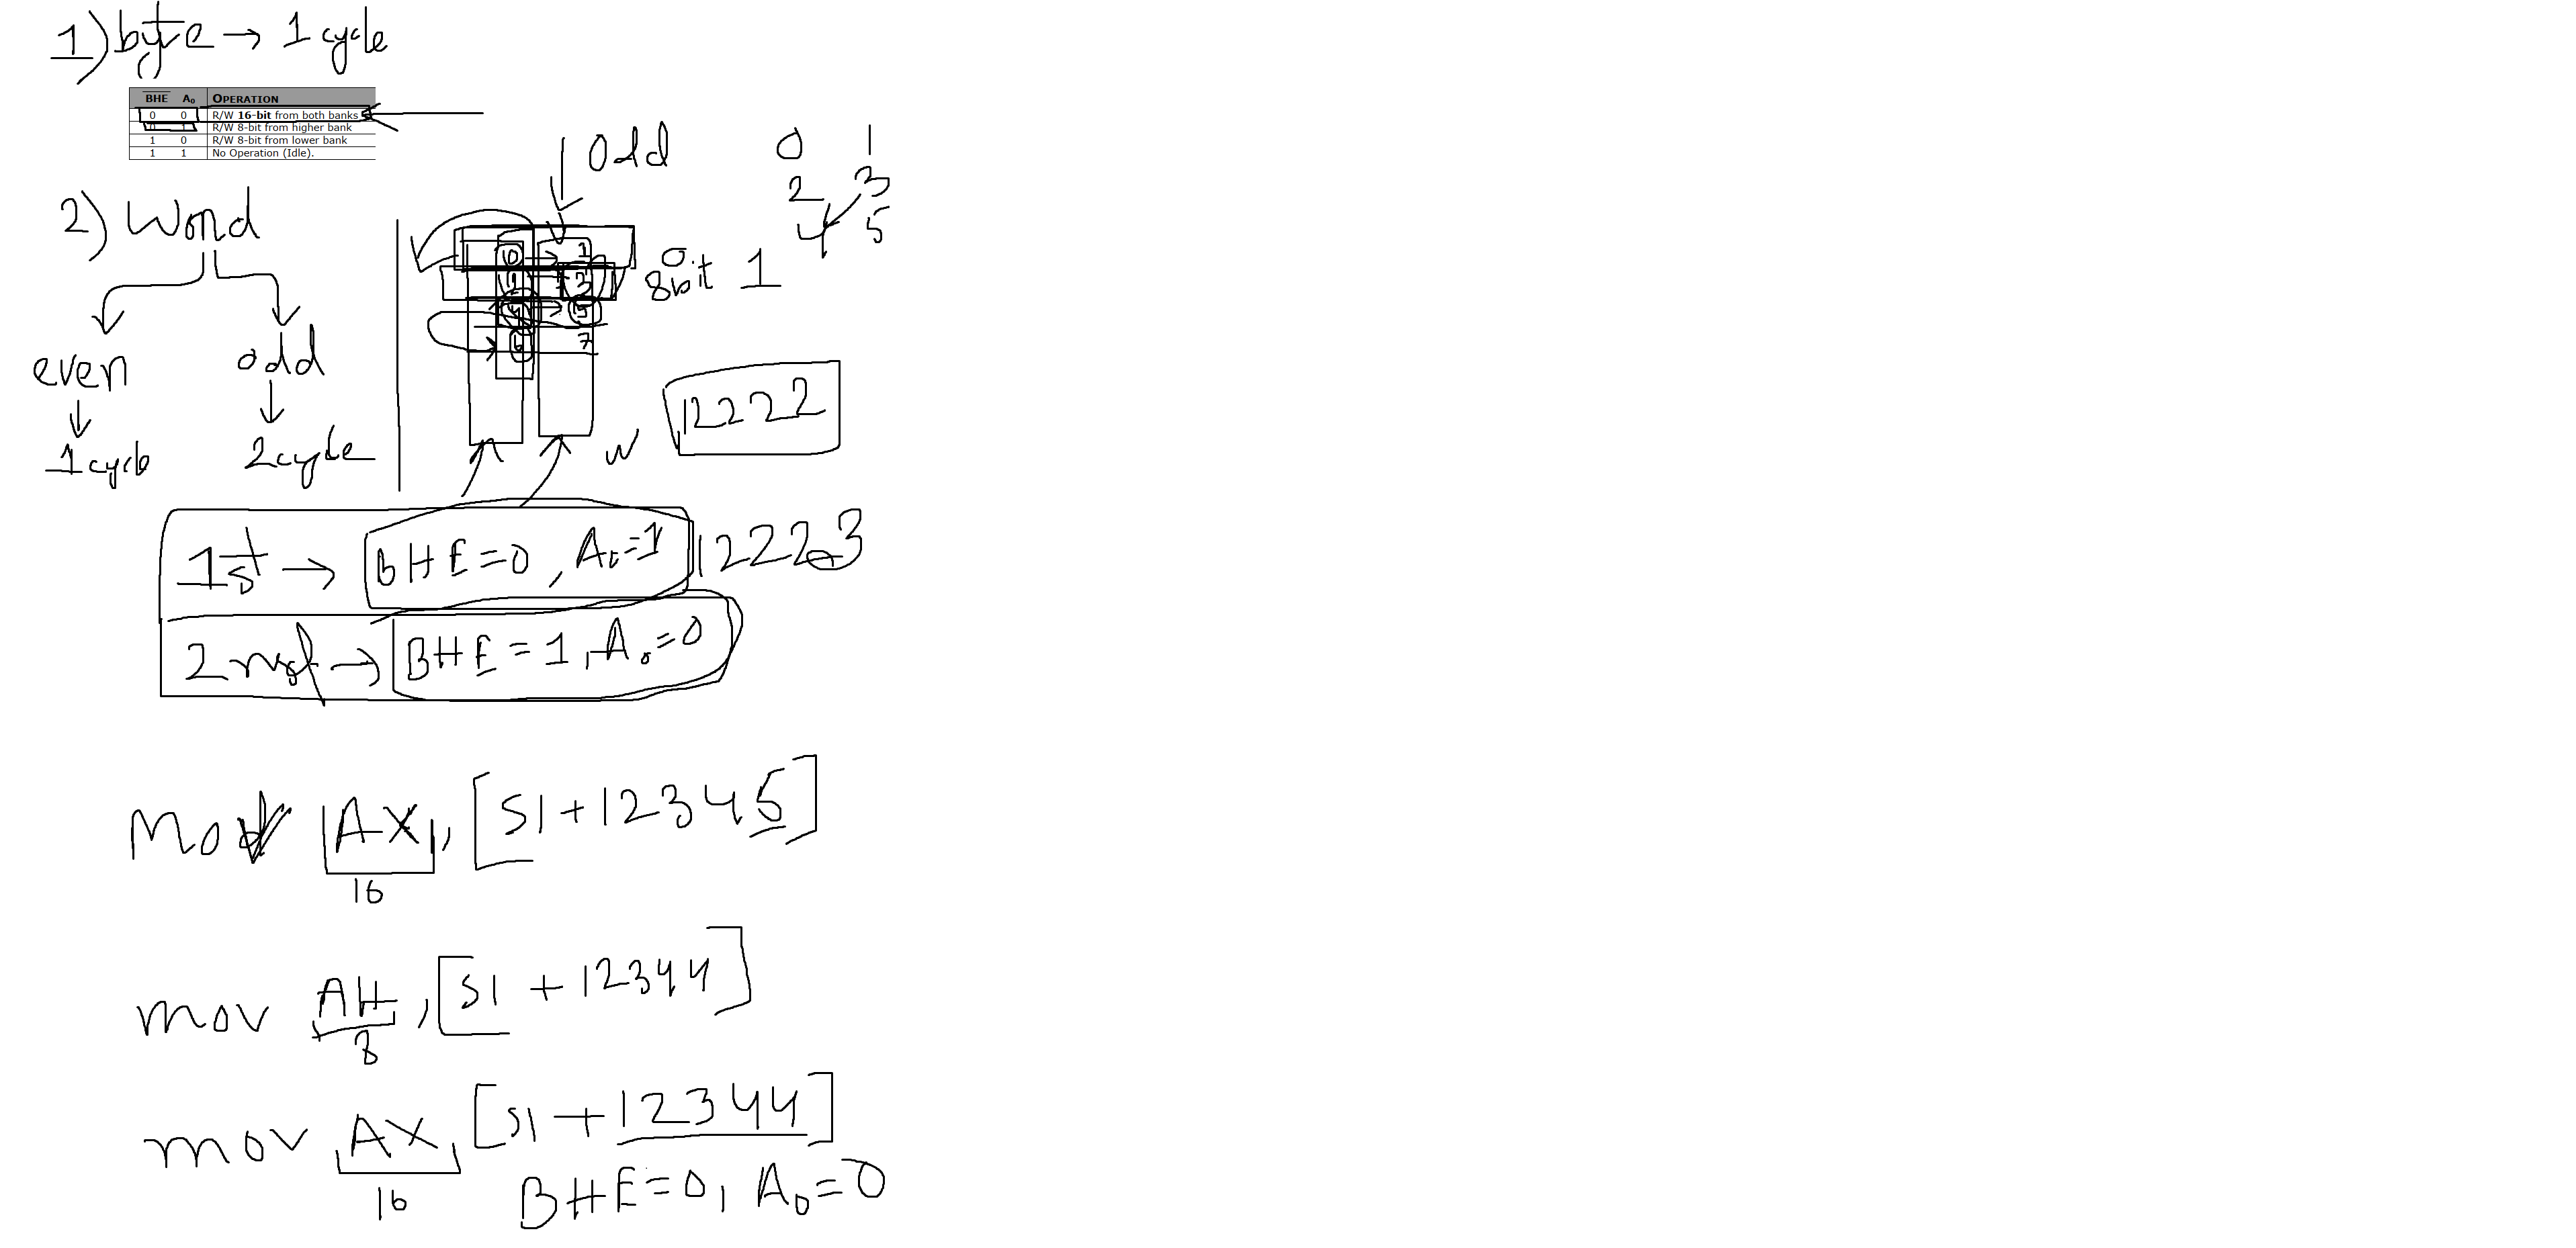 1) byte → 1 cycle
BHE A0 OPERATION
0 0 R/W 16-bit from both banks
0 1 R/W 8-bit from higher bank
1 0 R/W 8-bit from lower bank
1 1 No Operation (Idle).
2) Word
even odd
1 cycle 2 cycle
Odd
0 1
2 3
4 5
0 1
3
5
6 7
8bit 1
12222
1st → BHE=0, A0=1 12223
2nd → BHE=1, A0=0
Mov AX, [SI+12345]
16
mov AH, [SI+12344]
8
mov AX, [SI+12344]
16
BHE=0, A0=0